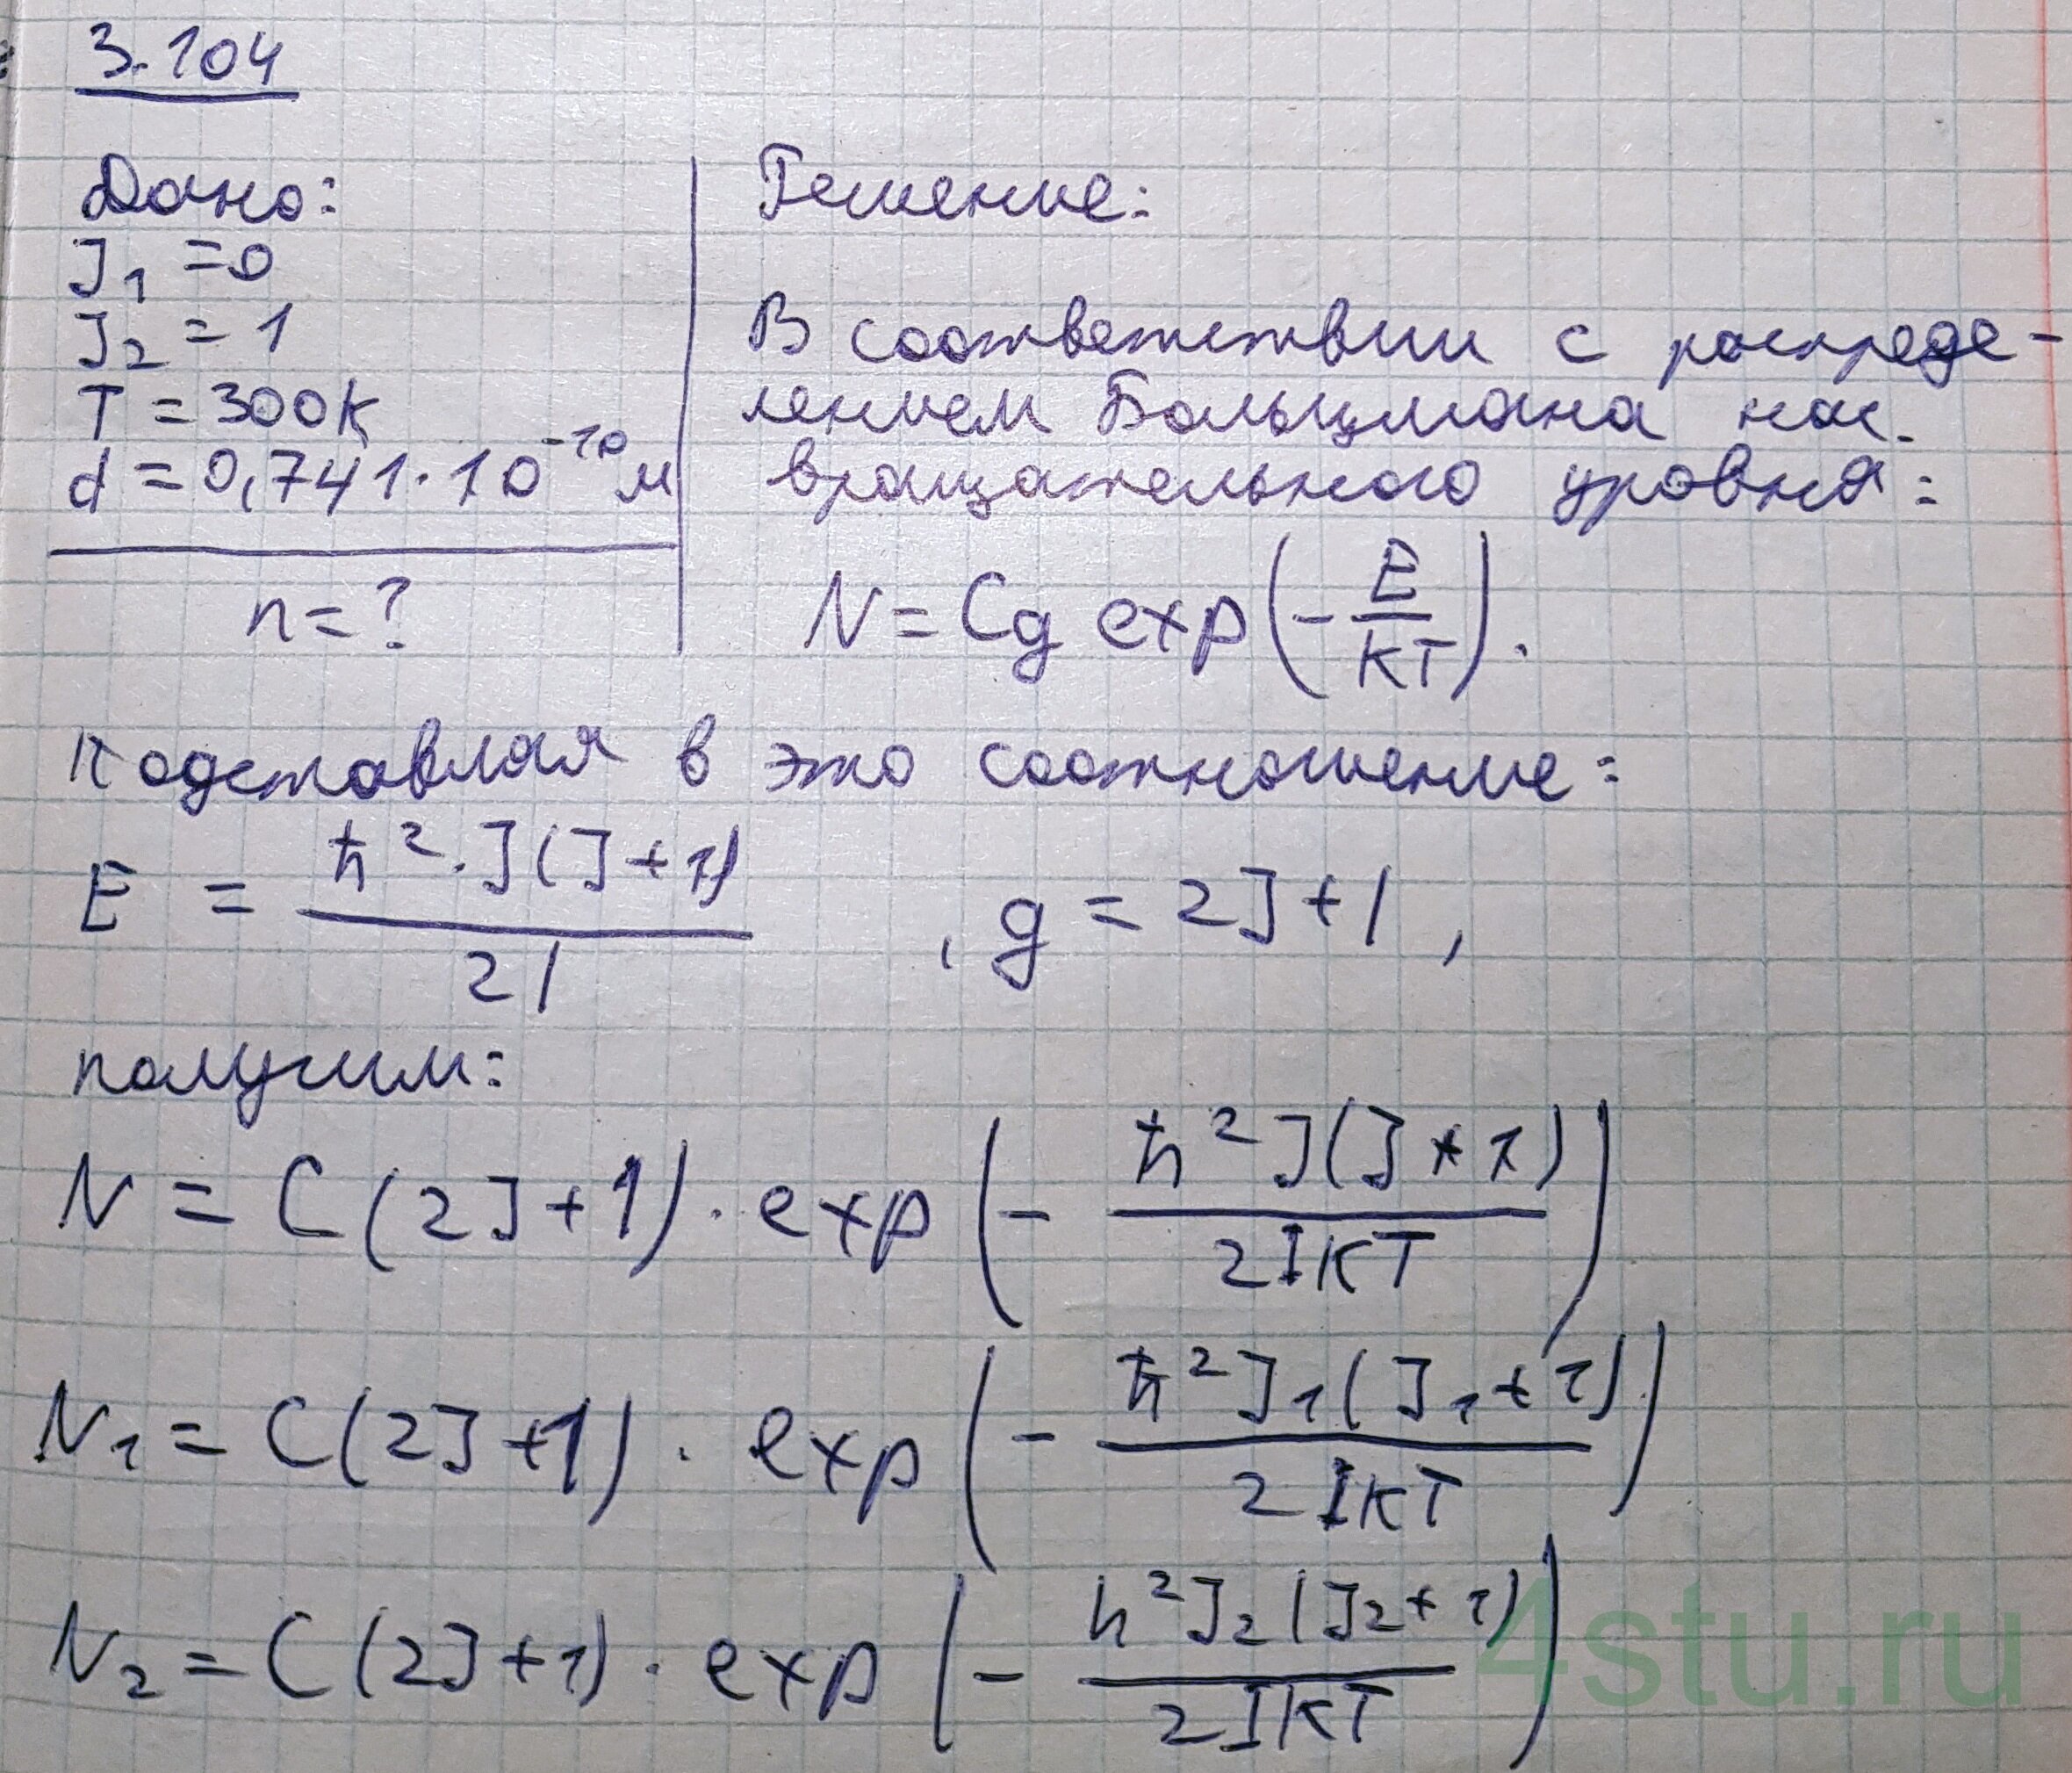 3.104
Дано:
J₁ = 0
J₂ = 1
T = 300К
d = 0,741·10⁻¹⁰ м
n = ?
Решение:
В соответствии с распреде-
лением Больцмана нас.
вращательного уровня:
N = Cg exp(-E/кТ).
Подставляя в это соотношение:
E = ħ²·J(J+1)/2I , g = 2J+1,
получим:
N = C(2J+1)·exp(-ħ²J(J+1)/2IкТ)
N₁ = C(2J+1)·exp(-ħ²J₁(J₁+1)/2IкТ)
N₂ = C(2J+1)·exp(-ħ²J₂(J₂+1)/2IкТ)
4stu.ru